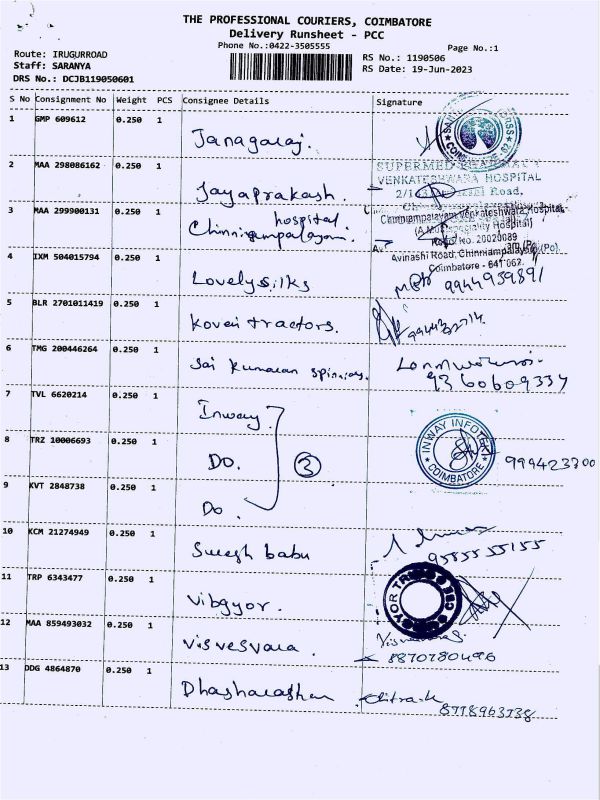 THE PROFESSIONAL COURIERS, COIMBATORE
Delivery Runsheet - PCC
Phone No.:0422-3505555
Page No.:1
Route: IRUGURROAD
Staff: SARANYA
DRS No.: DCJB119050601
RS No.: 1190506
RS Date: 19-Jun-2023
S No Consignment No Weight PCS Consignee Details Signature
1 GMP 609612 0.250 1 Janagaraj.
2 MAA 298086162 0.250 1 Jayaprakash.
SUPERMED
VENKATESHWARA HOSPITAL
Road.
3 MAA 299900131 0.250 1 hospital.
Chinniampalayam.
Chinniampalayam Venkateshwara Hospital
(A Multispeciality Hospital)
Regd No. 20020089
Avinashi Road, Chinniampalayam (Po)
Coimbatore - 641 062.
4 IXM 504015794 0.250 1 Lovelysilks 9944959891
5 BLR 2701011419 0.250 1 Kovai tractors.
6 TMG 200446264 0.250 1 Sai kumaran spinnings. 9360609334
7 TVL 6620214 0.250 1 Inway
8 TRZ 10006693 0.250 1 Do. 3
INWAY INFOTEK
COIMBATORE
999423300
9 KVT 2848738 0.250 1 Do.
10 KCM 21274949 0.250 1 Suresh babu 9585555155
11 TRP 6343477 0.250 1 Vibgyor.
12 MAA 859493032 0.250 1 Visvesvara. 8870780496
13 DDG 4864870 0.250 1 Dhasharathan Chitra.k
8778963738